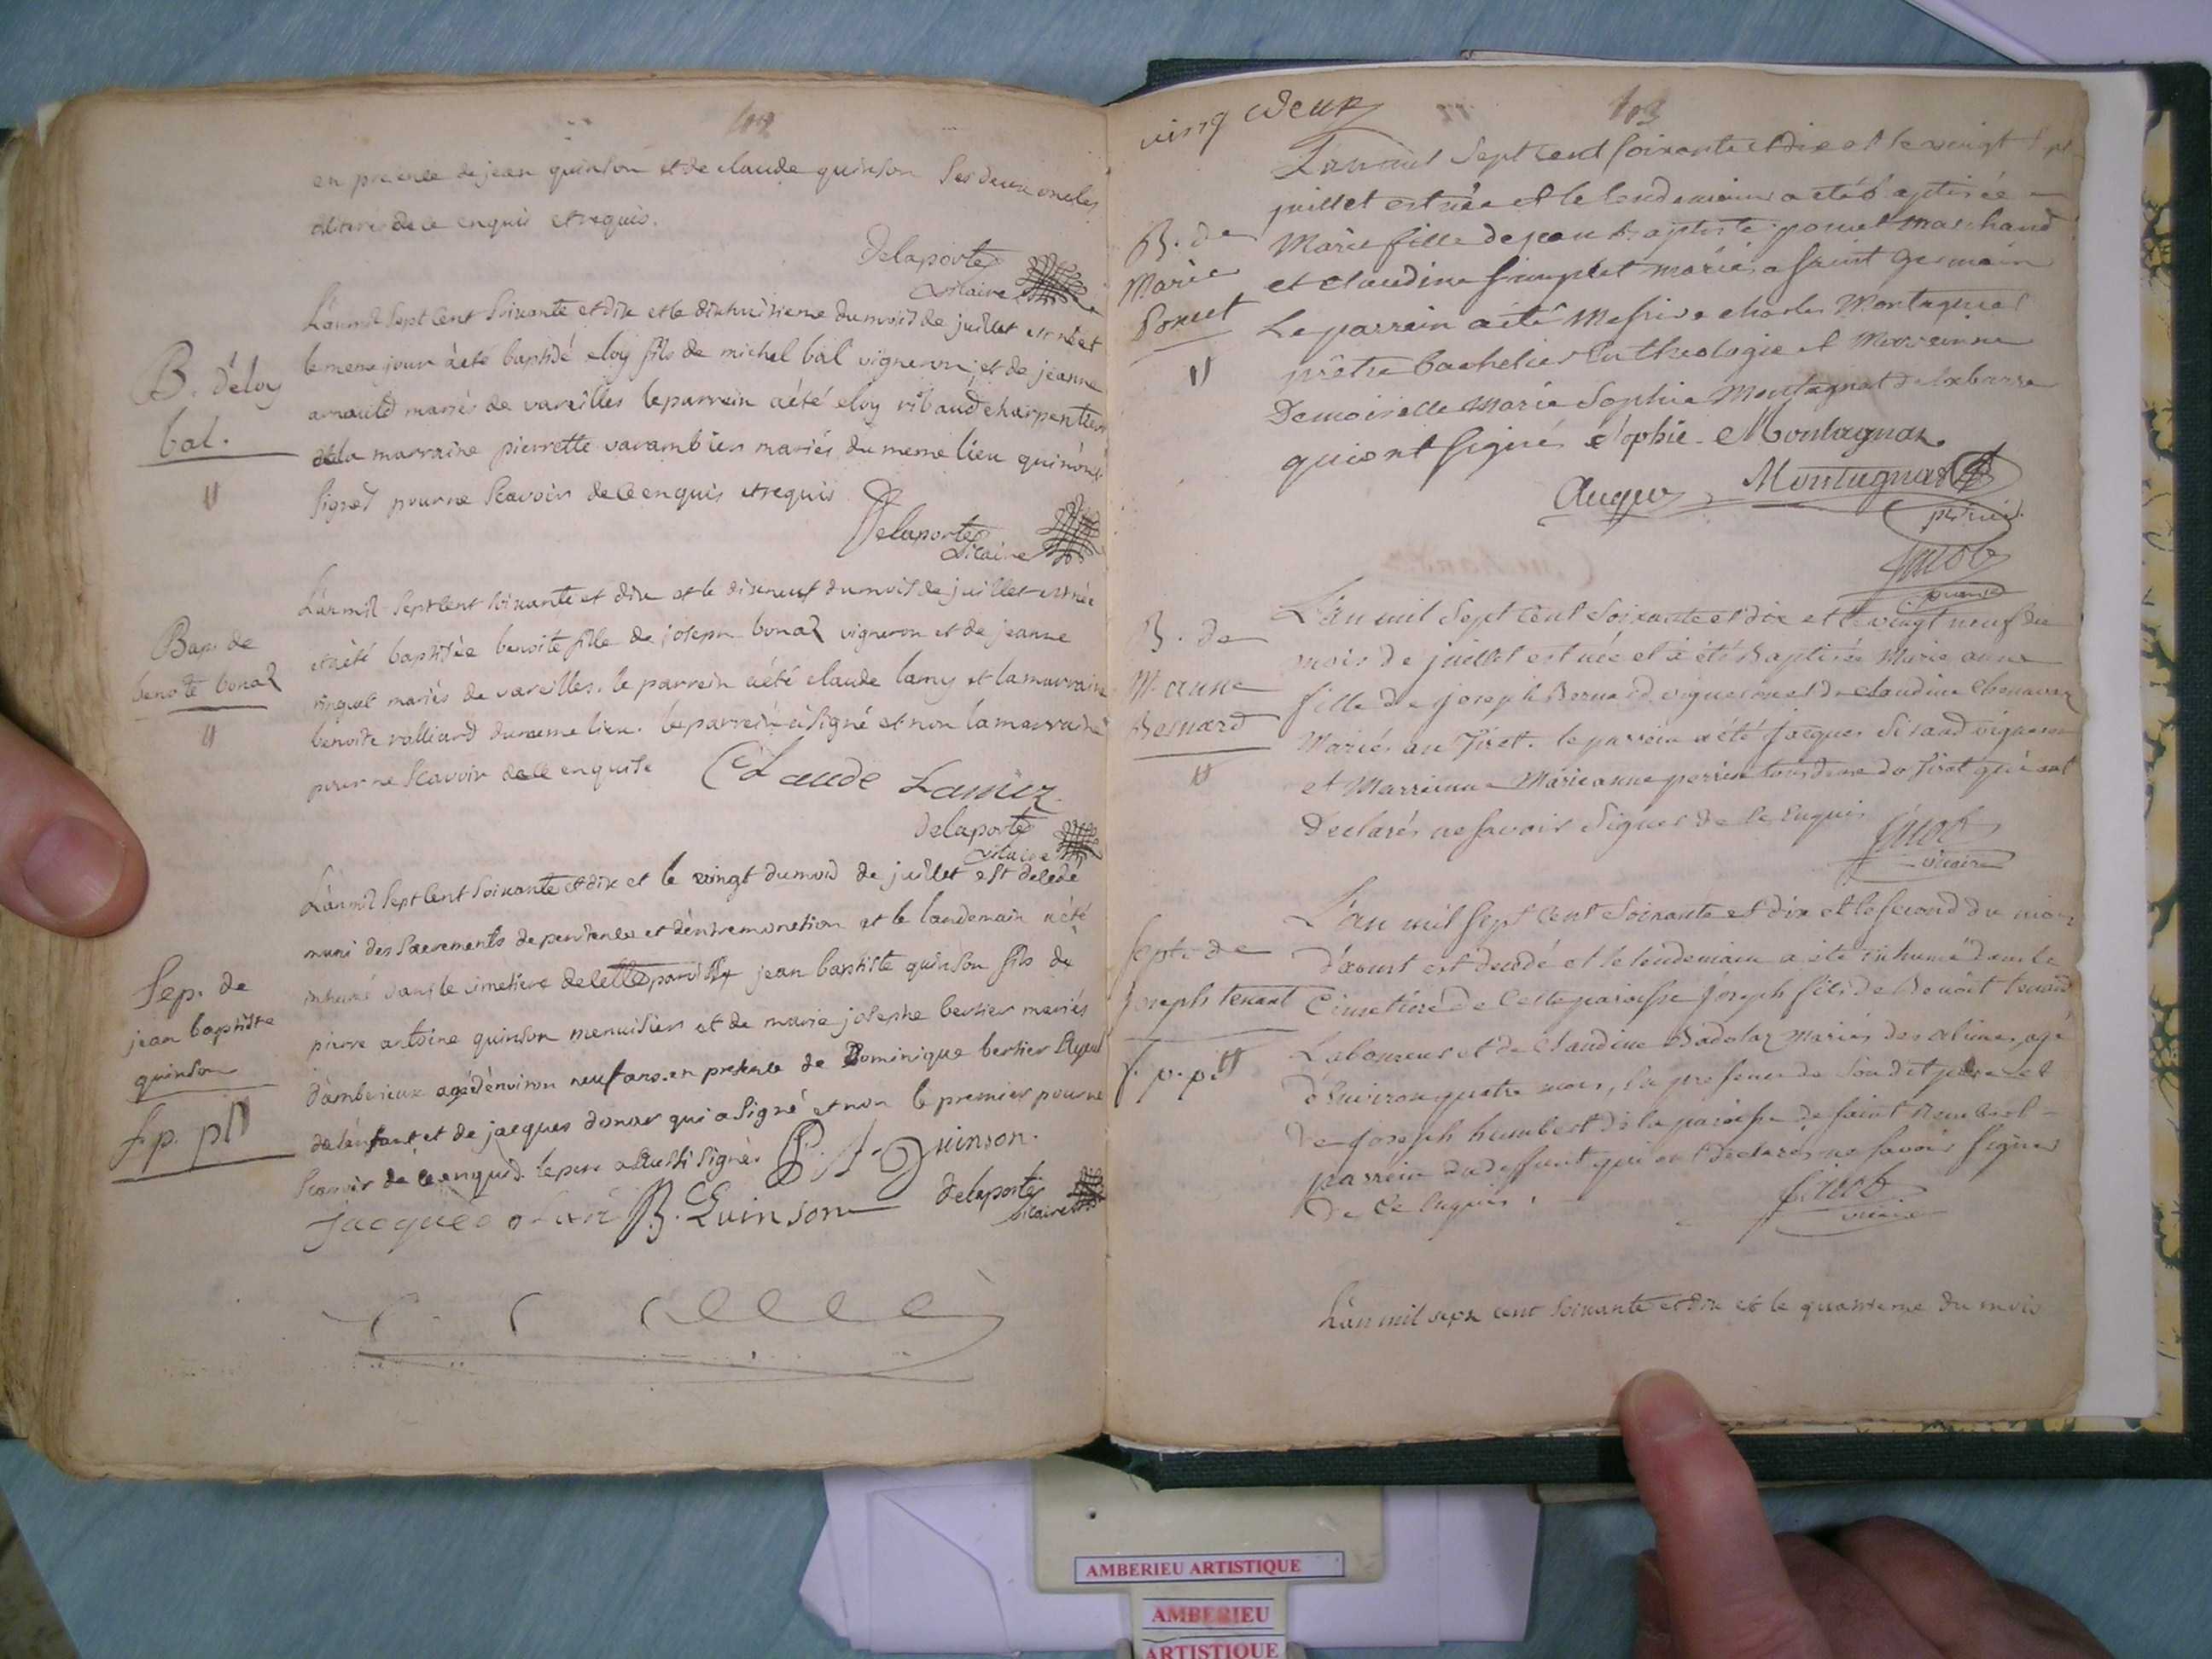 en presence de jean quinson et de claude quinson ses deux oncles
de ce enquis et requis.
Delaporte
vicaire
L'an mil sept cent soixante et dix et le dixhuitieme du mois de juillet est né et
B. d'éloy
bal.
le meme jour a été baptisé eloy fils de michel bal vigneron, et de jeanne
mariés de vareilles le parrein a été eloy ribaud charpentier
et la marraine pierrette varambier mariés du meme lieu qui n'ont
signes pour ne scavoir de ce enquis et requis
Delaporte
vicaire
L'an mil sept cent soixante et dix et le dixneuf du mois de juillet est née
Bap. de
benoite bonaz
et a été baptisée benoite fille de joseph bonaz vigneron et de jeanne
mariés de vareilles. le parrein a été claude lamy et la marraine
benoite ralliard du meme lieu. le parrein a signé et non la marraine
pour ne scavoir de ce enquise
Claude Lamiz
delaporte
vicaire
L'an mil sept cent soixante et dix et le vingt du mois de juillet est decede
muni des sacrements de penitence et d'extremonction et le landemain a été
Sep. de
jean baptiste
quinson
f. p. p.
inhumé dans le cimetiere de cette paroisse jean baptiste quinson fils de
pierre antoine quinson menuisier et de marie josephe berlier mariés
d'amberieux agé d'environ neuf ans. en presence de Dominique berlier Ayeul
de l'enfant et de jacques donar qui a signé et non le premier pour ne
scavoir de ce enquis. le pere a aussi signé. P. A. Quinson.
jacques B. Quinson delaporte
vicaire
vingt deux
103
L'an mil sept cent soixante et dix et le vingt sept
juillet est née et le lendemain a été baptisée
B. de
Marie
Ponset
Marie fille de jean baptiste ponset marchand
et claudine mariés a saint germain
Le parrein a été Messire charles Montagnat
prêtre bachelier en theologie et Marreinne
Demoiselle Marie Sophie Montagnat delabarre
qui ont signé Sophie Montagnat
Auger Montagnat
prêtre
Jacob
L'an mil sept cent soixante et dix et le vingt neuf du
B. de
M. anne
Bernard
mois de juillet est née et a été Baptisée Marie anne
fille de joseph Bernard vigneron et de claudine Chenavaz
Mariés au Tiret. le parrein a été Jacques Sirand vigneron
et Marreinne Marie anne perrin tous deux du Tiret qui ont
declarés ne savoir signer de ce Enquis
Jacob
vicaire
L'an mil sept cent soixante et dix et le second du mois
Sept. de
joseph tenant
f. p. p.
d'aoust est decedé et le lendemain a été inhumé dans le
Cimetiere de Cette paroisse Joseph fils de Benoit tenand
Laboureur et de Claudine Badolaz Mariés des alimes, agé
d'Environ quatre mois, En presence de Son dit pere et
de Joseph humbert de la paroisse de saint Rembert
parrein du deffunt qui ont declarés ne savoir signer
de Ce Enquis.
Jacob
vicaire
L'an mil sept cent soixante et dix et le quatrieme du mois
AMBERIEU ARTISTIQUE
AMBERIEU
ARTISTIQUE